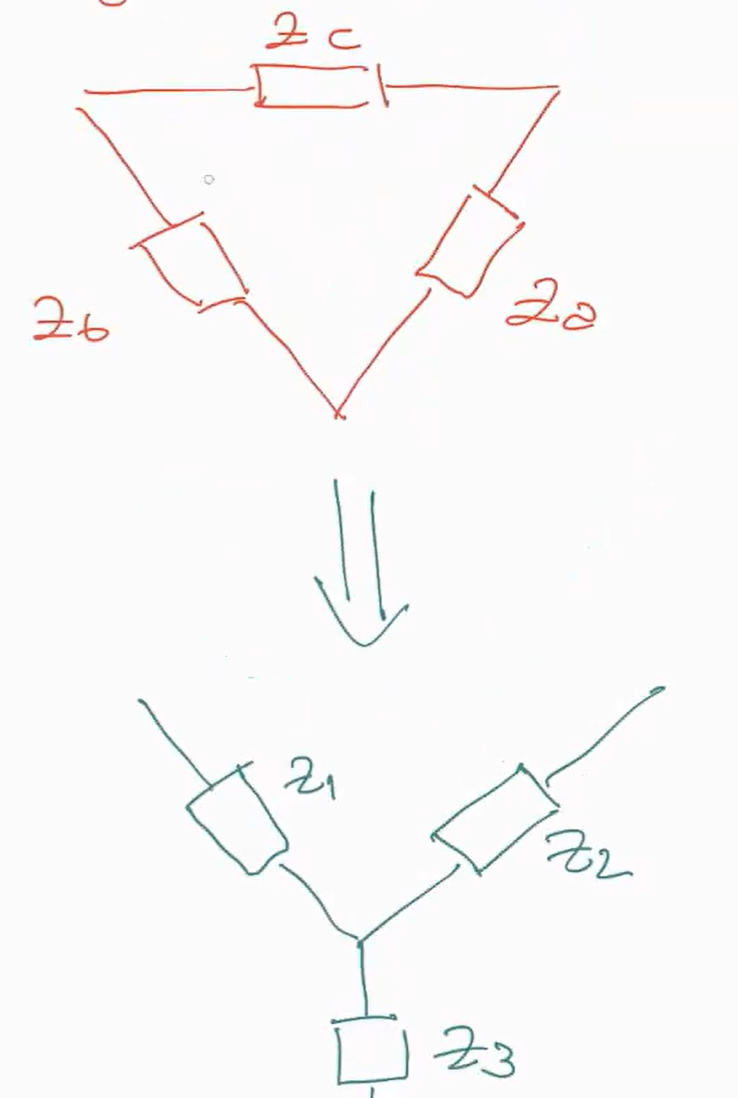 Zc
Zb
Za
Z1
Z2
Z3